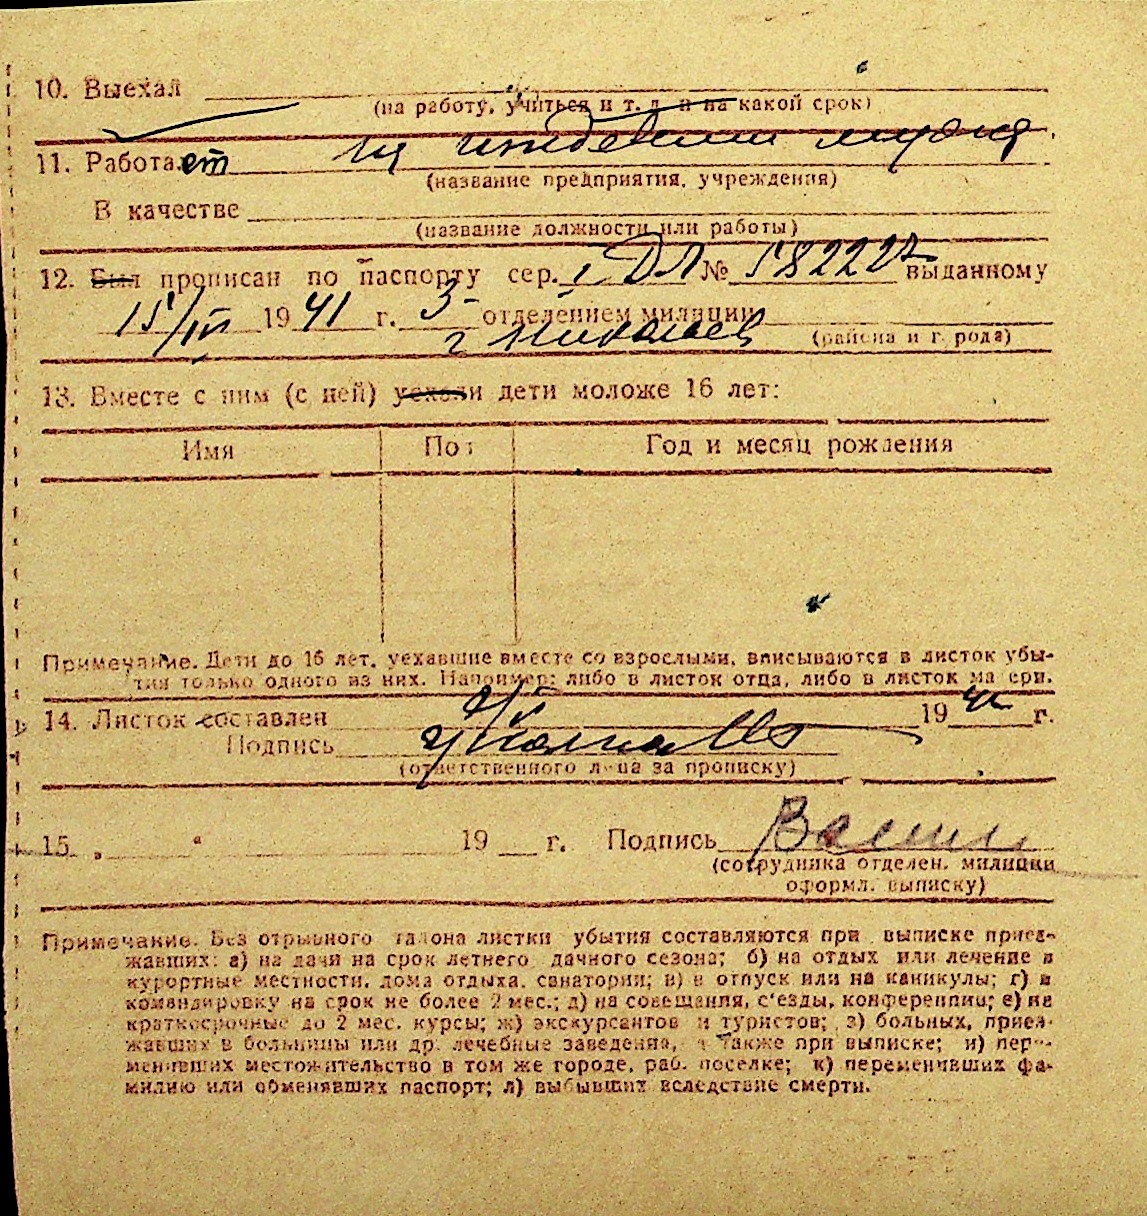 10. Выехал
(на работу, учиться и т. д. и на какой срок)
11. Работает на иждевении мужа
(название предприятия, учреждения)
В качестве
(название должности или работы)
12. Был прописан по паспорту сер. I ДЛ № 582227 выданному
15/III 1941 г. 5 отделением милиции
г Николаев
(района и города)
13. Вместе с ним (с ней) уехали дети моложе 16 лет:
Имя Пол Год и месяц рождения
Примечание. Дети до 16 лет, уехавшие вместе со взрослыми, вписываются в листок убы-
тия только одного из них. Например: либо в листок отца, либо в листок матери.
14. Листок составлен 19 г.
Подпись
(ответственного лица за прописку)
15. „ “ 19 г. Подпись
(сотрудника отделен. милиции
оформл. выписку)
Примечание. Без отрывного талона листки убытия составляются при выписке приез-
жавших: а) на дачи на срок летнего дачного сезона; б) на отдых или лечение в
курортные местности, дома отдыха, санатории; в) в отпуск или на каникулы; г) в
командировку на срок не более 2 мес.; д) на совещания, с'езды, конференции; е) на
краткосрочные до 2 мес. курсы; ж) экскурсантов и туристов; з) больных, приез-
жавших в больницы или др. лечебные заведения, а также при выписке; и) пере-
менивших местожительство в том же городе, раб. поселке; к) переменивших фа-
милию или обменявших паспорт; л) выбывших вследствие смерти.